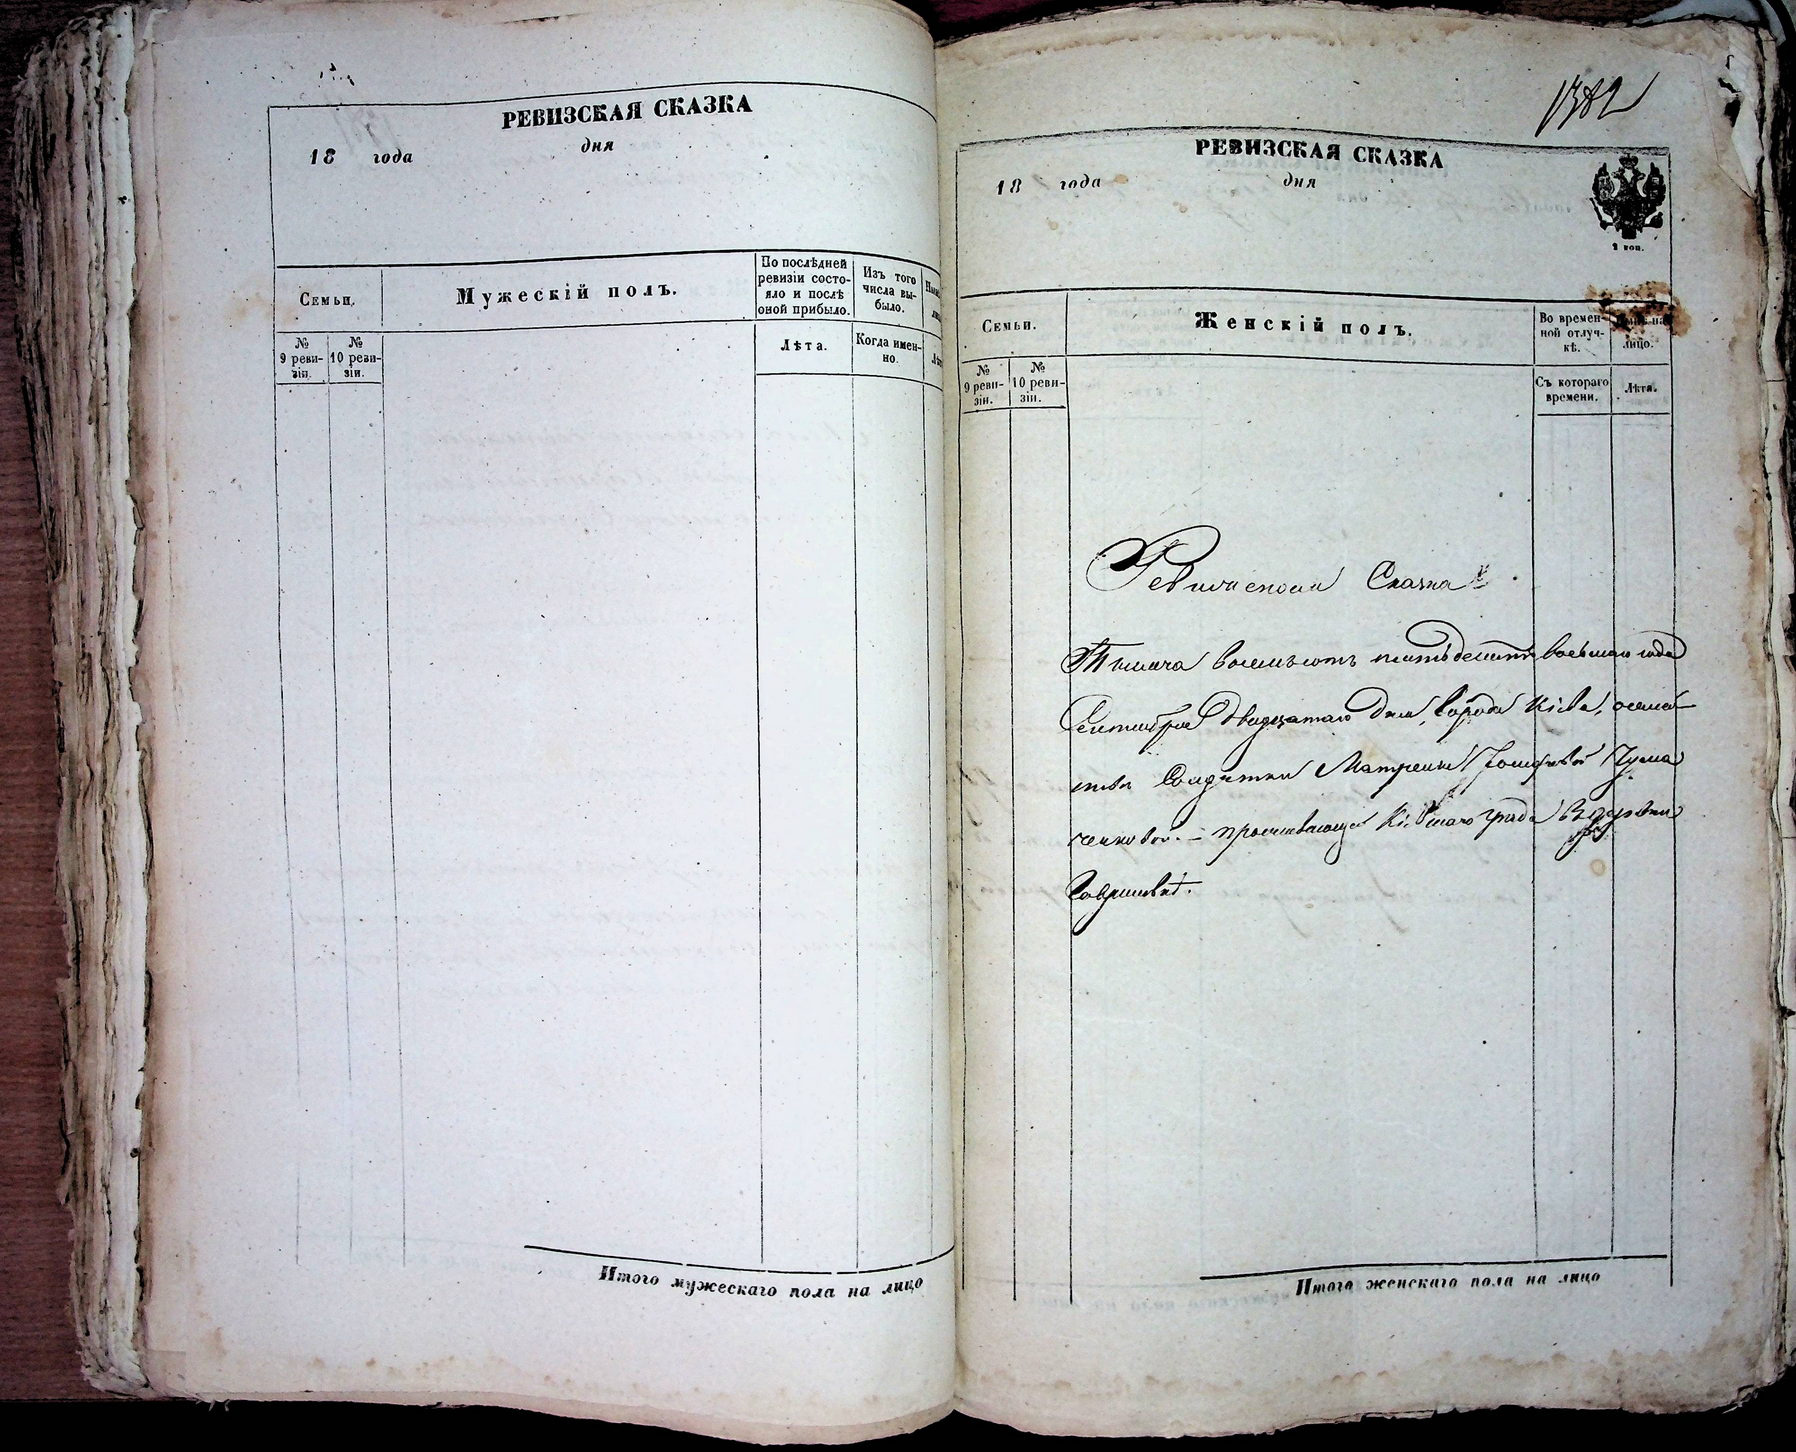 РЕВИЗСКАЯ СКАЗКА
18 года дня
Семьи.
Мужескій полъ.
По послѣдней ревизіи состояло и послѣ оной прибыло.
Изъ того числа выбыло.
№ 9 ревизіи.
№ 10 ревизіи.
Лѣта.
Когда именно.
Итого мужескаго пола на лицо
1382
РЕВИЗСКАЯ СКАЗКА
18 года дня
2 коп.
Семьи.
Женскій полъ.
Во временной отлучкѣ.
лицо.
№ 9 ревизіи.
№ 10 ревизіи.
Съ котораго времени.
Лѣта.
Ревизская Сказка
Тысяча восемьсотъ пятьдесятъ восьмаго года
Сентября двадцатаго дня, города Кіева,
Солдатки Матрены Чума
ченковой. – проживающей Кіевскаго уѣзда въ деревни
Гавришевкѣ.
Итого женскаго пола на лицо